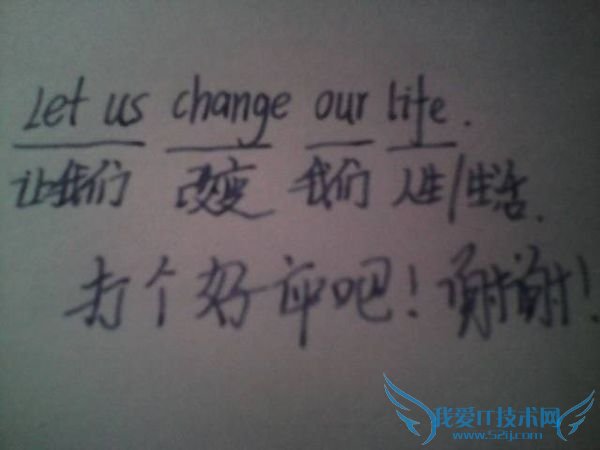 Let us change our life.
让我们 改变 我们 人生/生活.
打个好评吧!谢谢!
我爱IT技术网
www.52ij.com